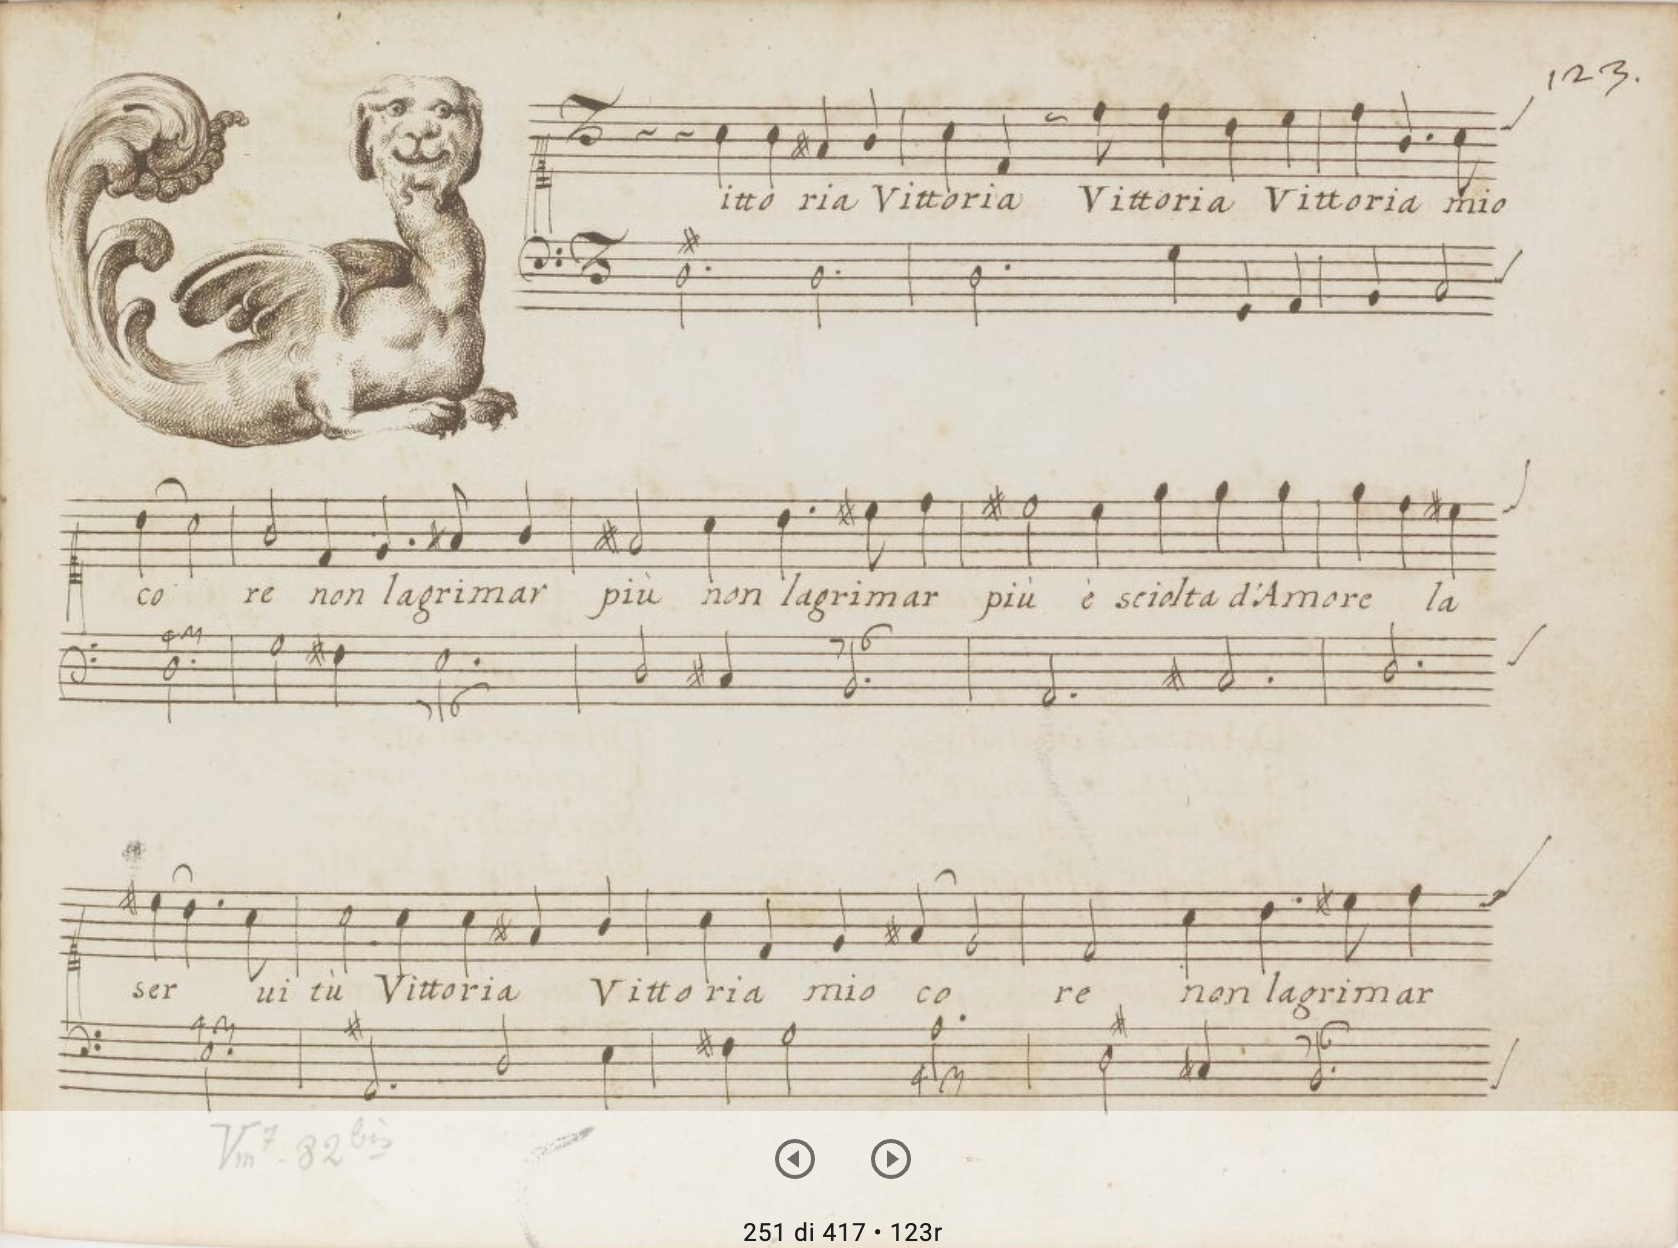 123.
itto ria Vittoria Vittoria Vittoria mio
co re non lagrimar più non lagrimar più è sciolta d'Amore la
ser ui tù Vittoria Vittoria mio co re non lagrimar
Vm7. 82 bis
251 di 417 • 123r